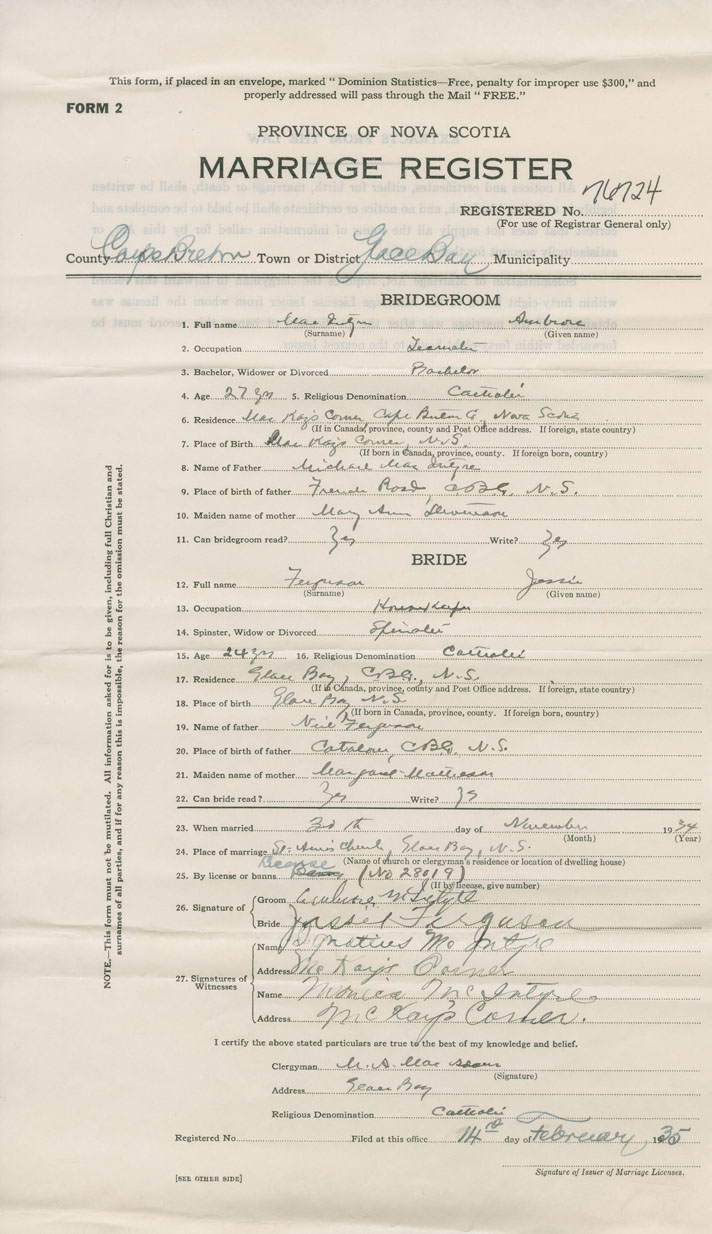 This form, if placed in an envelope, marked " Dominion Statistics—Free, penalty for improper use $300," and
properly addressed will pass through the Mail " FREE."
FORM 2
PROVINCE OF NOVA SCOTIA
MARRIAGE REGISTER
REGISTERED No.
(For use of Registrar General only)
County Cape Breton Town or District Glace Bay Municipality
BRIDEGROOM
1. Full name Mac Intyre Ambrose
(Surname) (Given name)
2. Occupation Teamster
3. Bachelor, Widower or Divorced Bachelor
4. Age 27 yrs 5. Religious Denomination Catholic
6. Residence Mac Kays Corner, Cape Breton Co, Nova Scotia
(If in Canada, province, county and Post Office address. If foreign, state country)
7. Place of Birth Mac Kays Corner, N.S.
(If born in Canada, province, county. If foreign born, country)
8. Name of Father Michael Mac Intyre
9. Place of birth of father French Road, C.B.Co, N.S.
10. Maiden name of mother Mary Ann Stevenson
11. Can bridegroom read? Yes Write? Yes
BRIDE
12. Full name Ferguson Jessie
(Surname) (Given name)
13. Occupation Housekeeper
14. Spinster, Widow or Divorced Spinster
15. Age 24 yrs 16. Religious Denomination Catholic
17. Residence Glace Bay, C.B.Co., N.S.
(If in Canada, province, county and Post Office address. If foreign, state country)
18. Place of birth Glace Bay N.S.
(If born in Canada, province, county. If foreign born, country)
19. Name of father Neil Ferguson
20. Place of birth of father Catalone, C.B.Co, N.S.
21. Maiden name of mother Margaret Matheson
22. Can bride read? Yes Write? Yes
23. When married 30 th day of November 1934
(Month) (Year)
24. Place of marriage St. Anns Church, Glace Bay, N.S.
(Name of church or clergyman's residence or location of dwelling house)
License
25. By license or banns Banns (No 28019)
(If by license, give number)
26. Signature of Groom Ambrose McIntyre
Bride Jessie Ferguson
27. Signatures of Witnesses
Name Ignatius Mc Intyre
Address Mc Kay's Corner
Name Monica McIntyre
Address McKay's Corner.
I certify the above stated particulars are true to the best of my knowledge and belief.
Clergyman M. A. Mac
(Signature)
Address Glace Bay
Religious Denomination Catholic
Registered No. Filed at this office 14 day of February 1935
Signature of Issuer of Marriage Licenses.
[SEE OTHER SIDE]
NOTE.—This form must not be mutilated. All information asked for is to be given, including full Christian and
surnames of all parties, and if for any reason this is impossible, the reason for the omission must be stated.